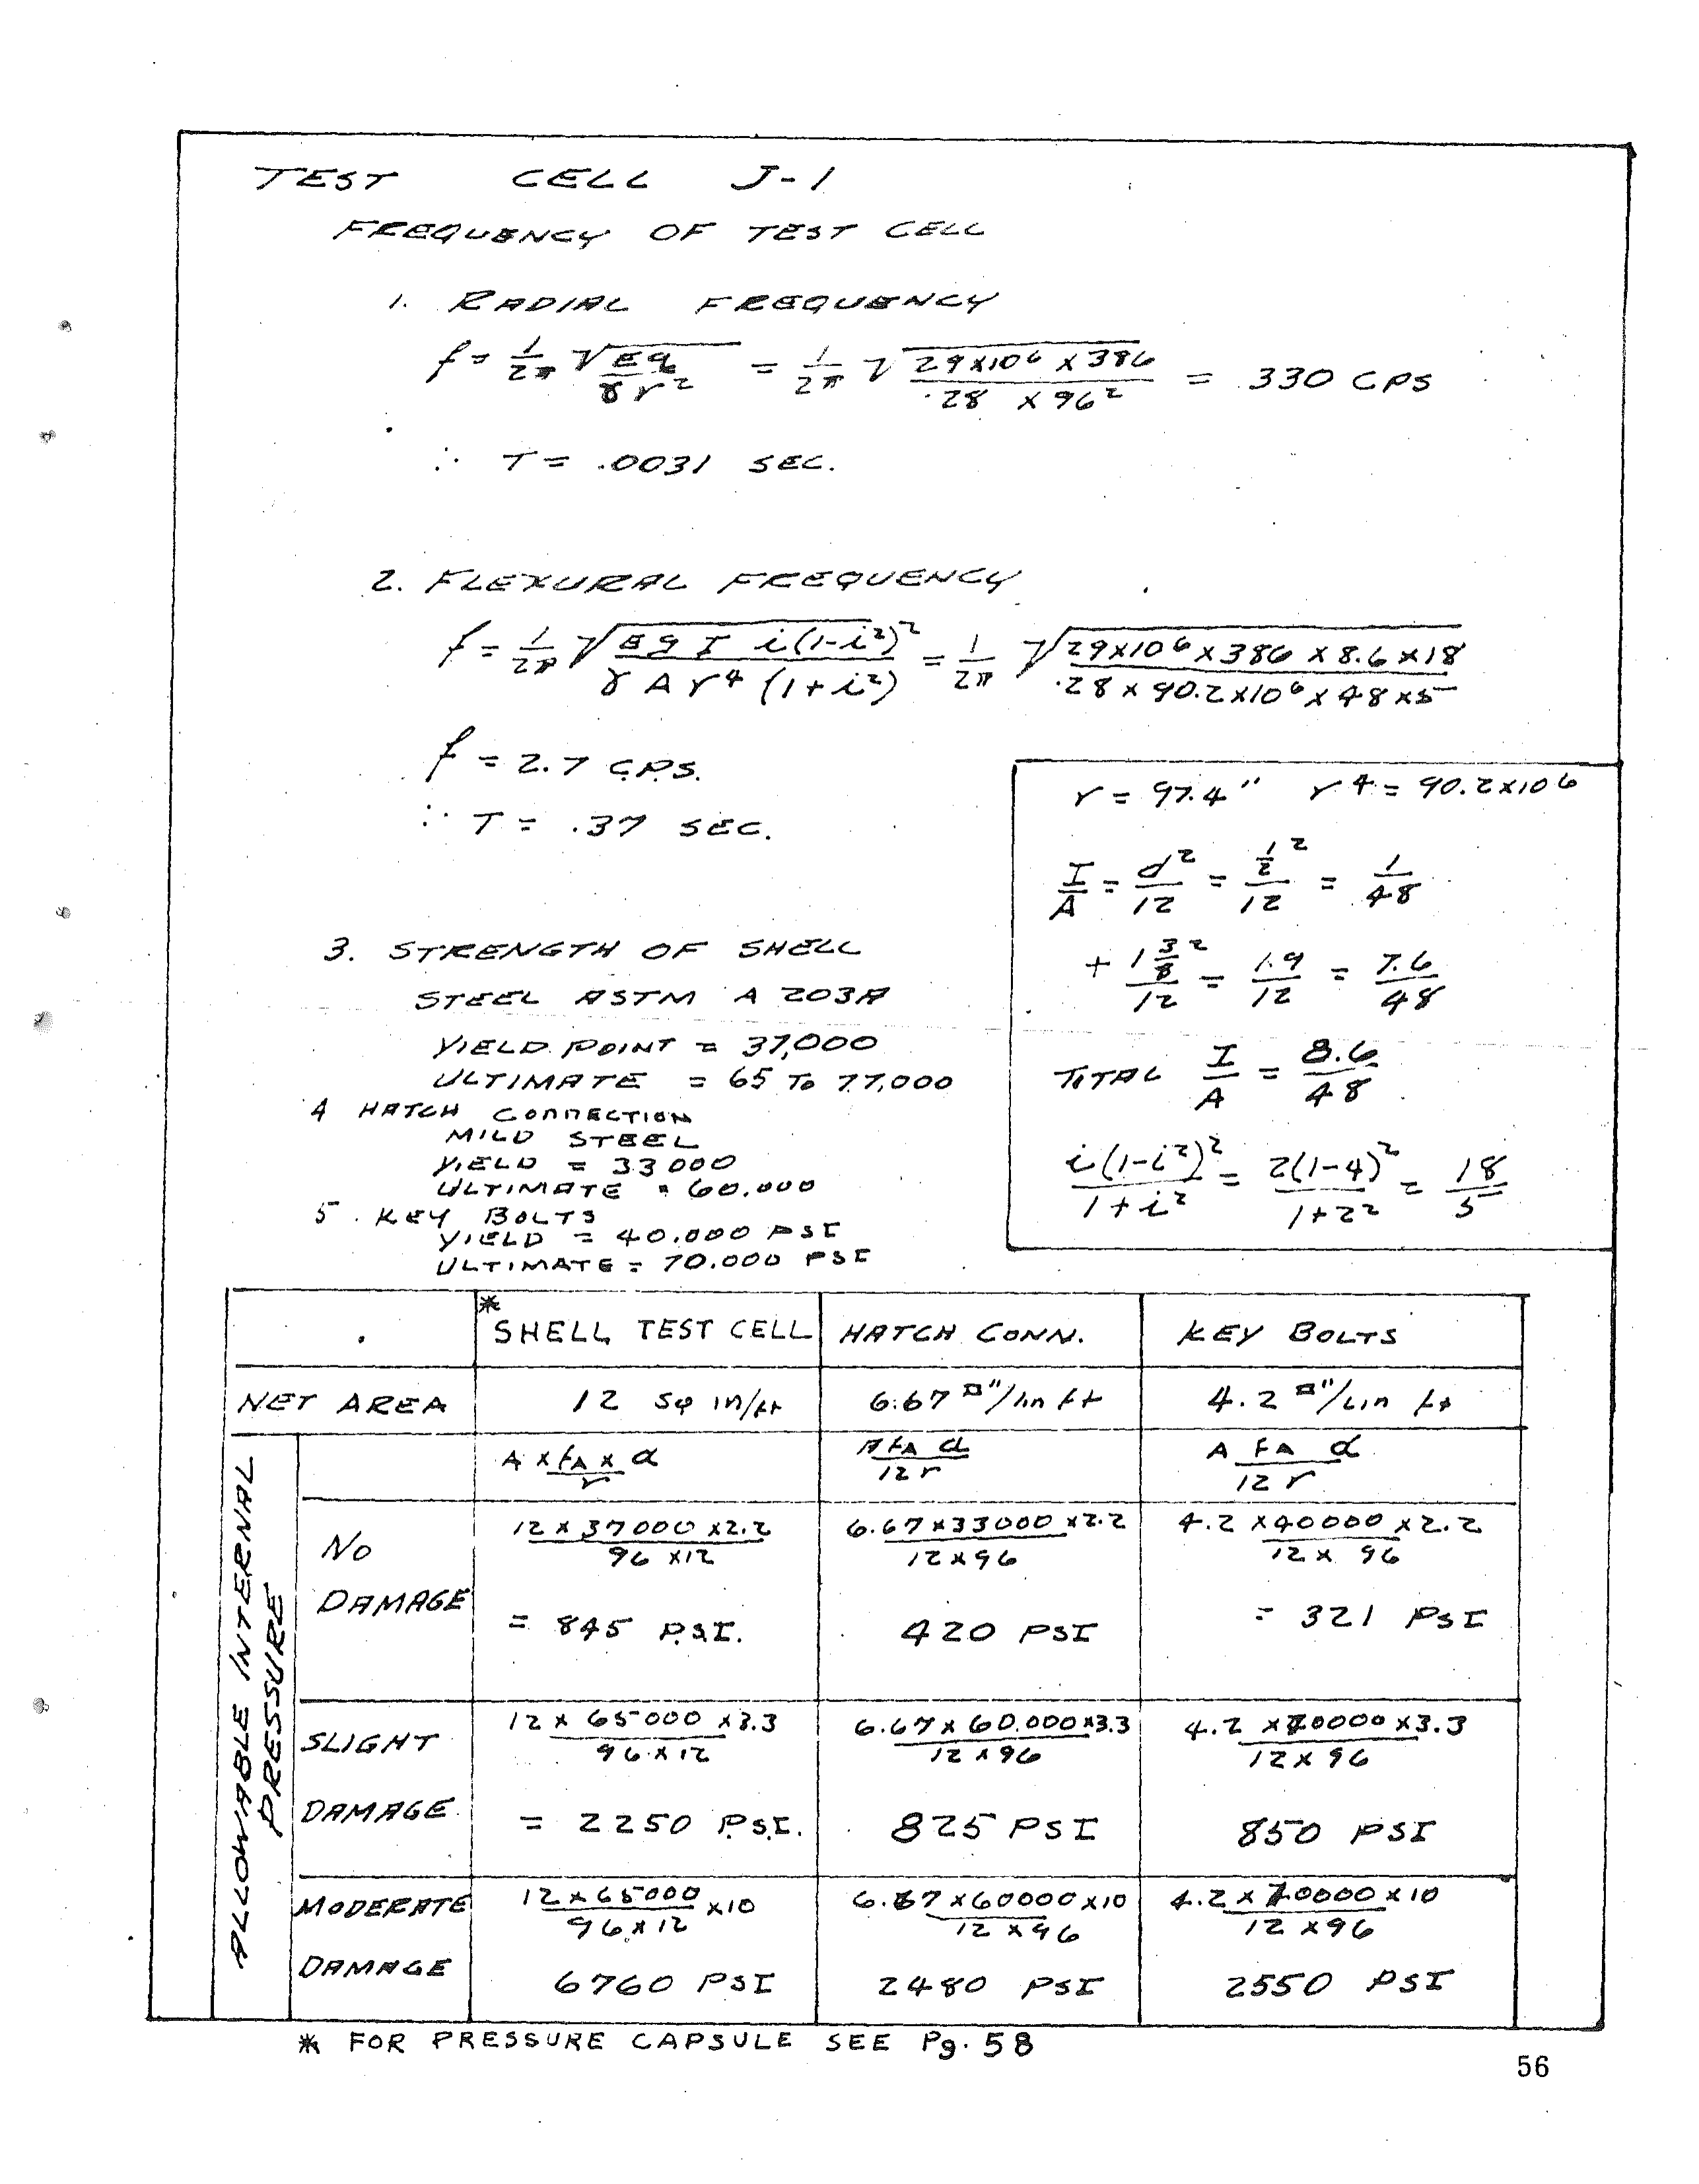 TEST CELL J-1
FREQUENCY OF TEST CELL
1. RADIAL FREQUENCY
f = 1/2π √(Eg/γr²) = 1/2π √(29x10⁶ x 386/.28 x 96²) = 330 CPS
∴ T = .0031 SEC.
2. FLEXURAL FREQUENCY
f = 1/2π √(EgI i(1-i²)²/γAr⁴(1+i²)) = 1/2π √(29x10⁶x386 x 8.6x18/.28 x 90.2x10⁶x48x5)
f = 2.7 C.P.S.
∴ T = .37 SEC.
r = 97.4" r⁴ = 90.2x10⁶
I/A = d²/12 = ½²/12 = 1/48
+ 1⅜²/12 = 1.9/12 = 7.6/48
TOTAL I/A = 8.6/48
i(1-i²)²/1+i² = 2(1-4)²/1+2² = 18/5
3. STRENGTH OF SHELL
STEEL ASTM A 203A
YIELD POINT = 37,000
ULTIMATE = 65 TO 77,000
4 HATCH CONNECTION
MILD STEEL
YIELD = 33000
ULTIMATE = 60.000
5. KEY BOLTS
YIELD = 40.000 PSI
ULTIMATE = 70.000 PSI
* SHELL TEST CELL HATCH CONN. KEY BOLTS
NET AREA 12 sq in/ft 6.67 □"/lin ft 4.2 □"/lin ft
ALLOWABLE INTERNAL PRESSURE
A x fA x α/r A fA α/12 r A FA α/12 r
NO DAMAGE
12 x 37000 x2.2/96 x12 6.67x33000 x2.2/12x96 4.2 x40000 x2.2/12 x 96
= 845 P.S.I. 420 PSI = 321 PSI
SLIGHT DAMAGE
12 x 65000 x3.3/96 x 12 6.67x 60.000x3.3/12 x96 4.2 x70000 x3.3/12 x 96
= 2250 P.S.I. 825 PSI 850 PSI
MODERATE DAMAGE
12 x65000/96 x 12 x10 6.67 x60000 x10/12 x96 4.2 x 70000 x 10/12 x96
6760 PSI 2480 PSI 2550 PSI
* FOR PRESSURE CAPSULE SEE Pg. 58
56